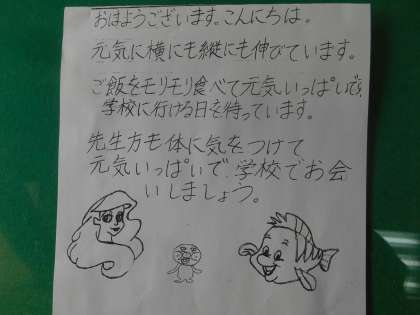 おはようございます。こんにちは。
元気に横にも縦にも伸びています。
ご飯をモリモリ食べて元気いっぱいです。
学校に行ける日を待っています。
先生方も体に気をつけて
元気いっぱいで、学校でお会
いしましょう。